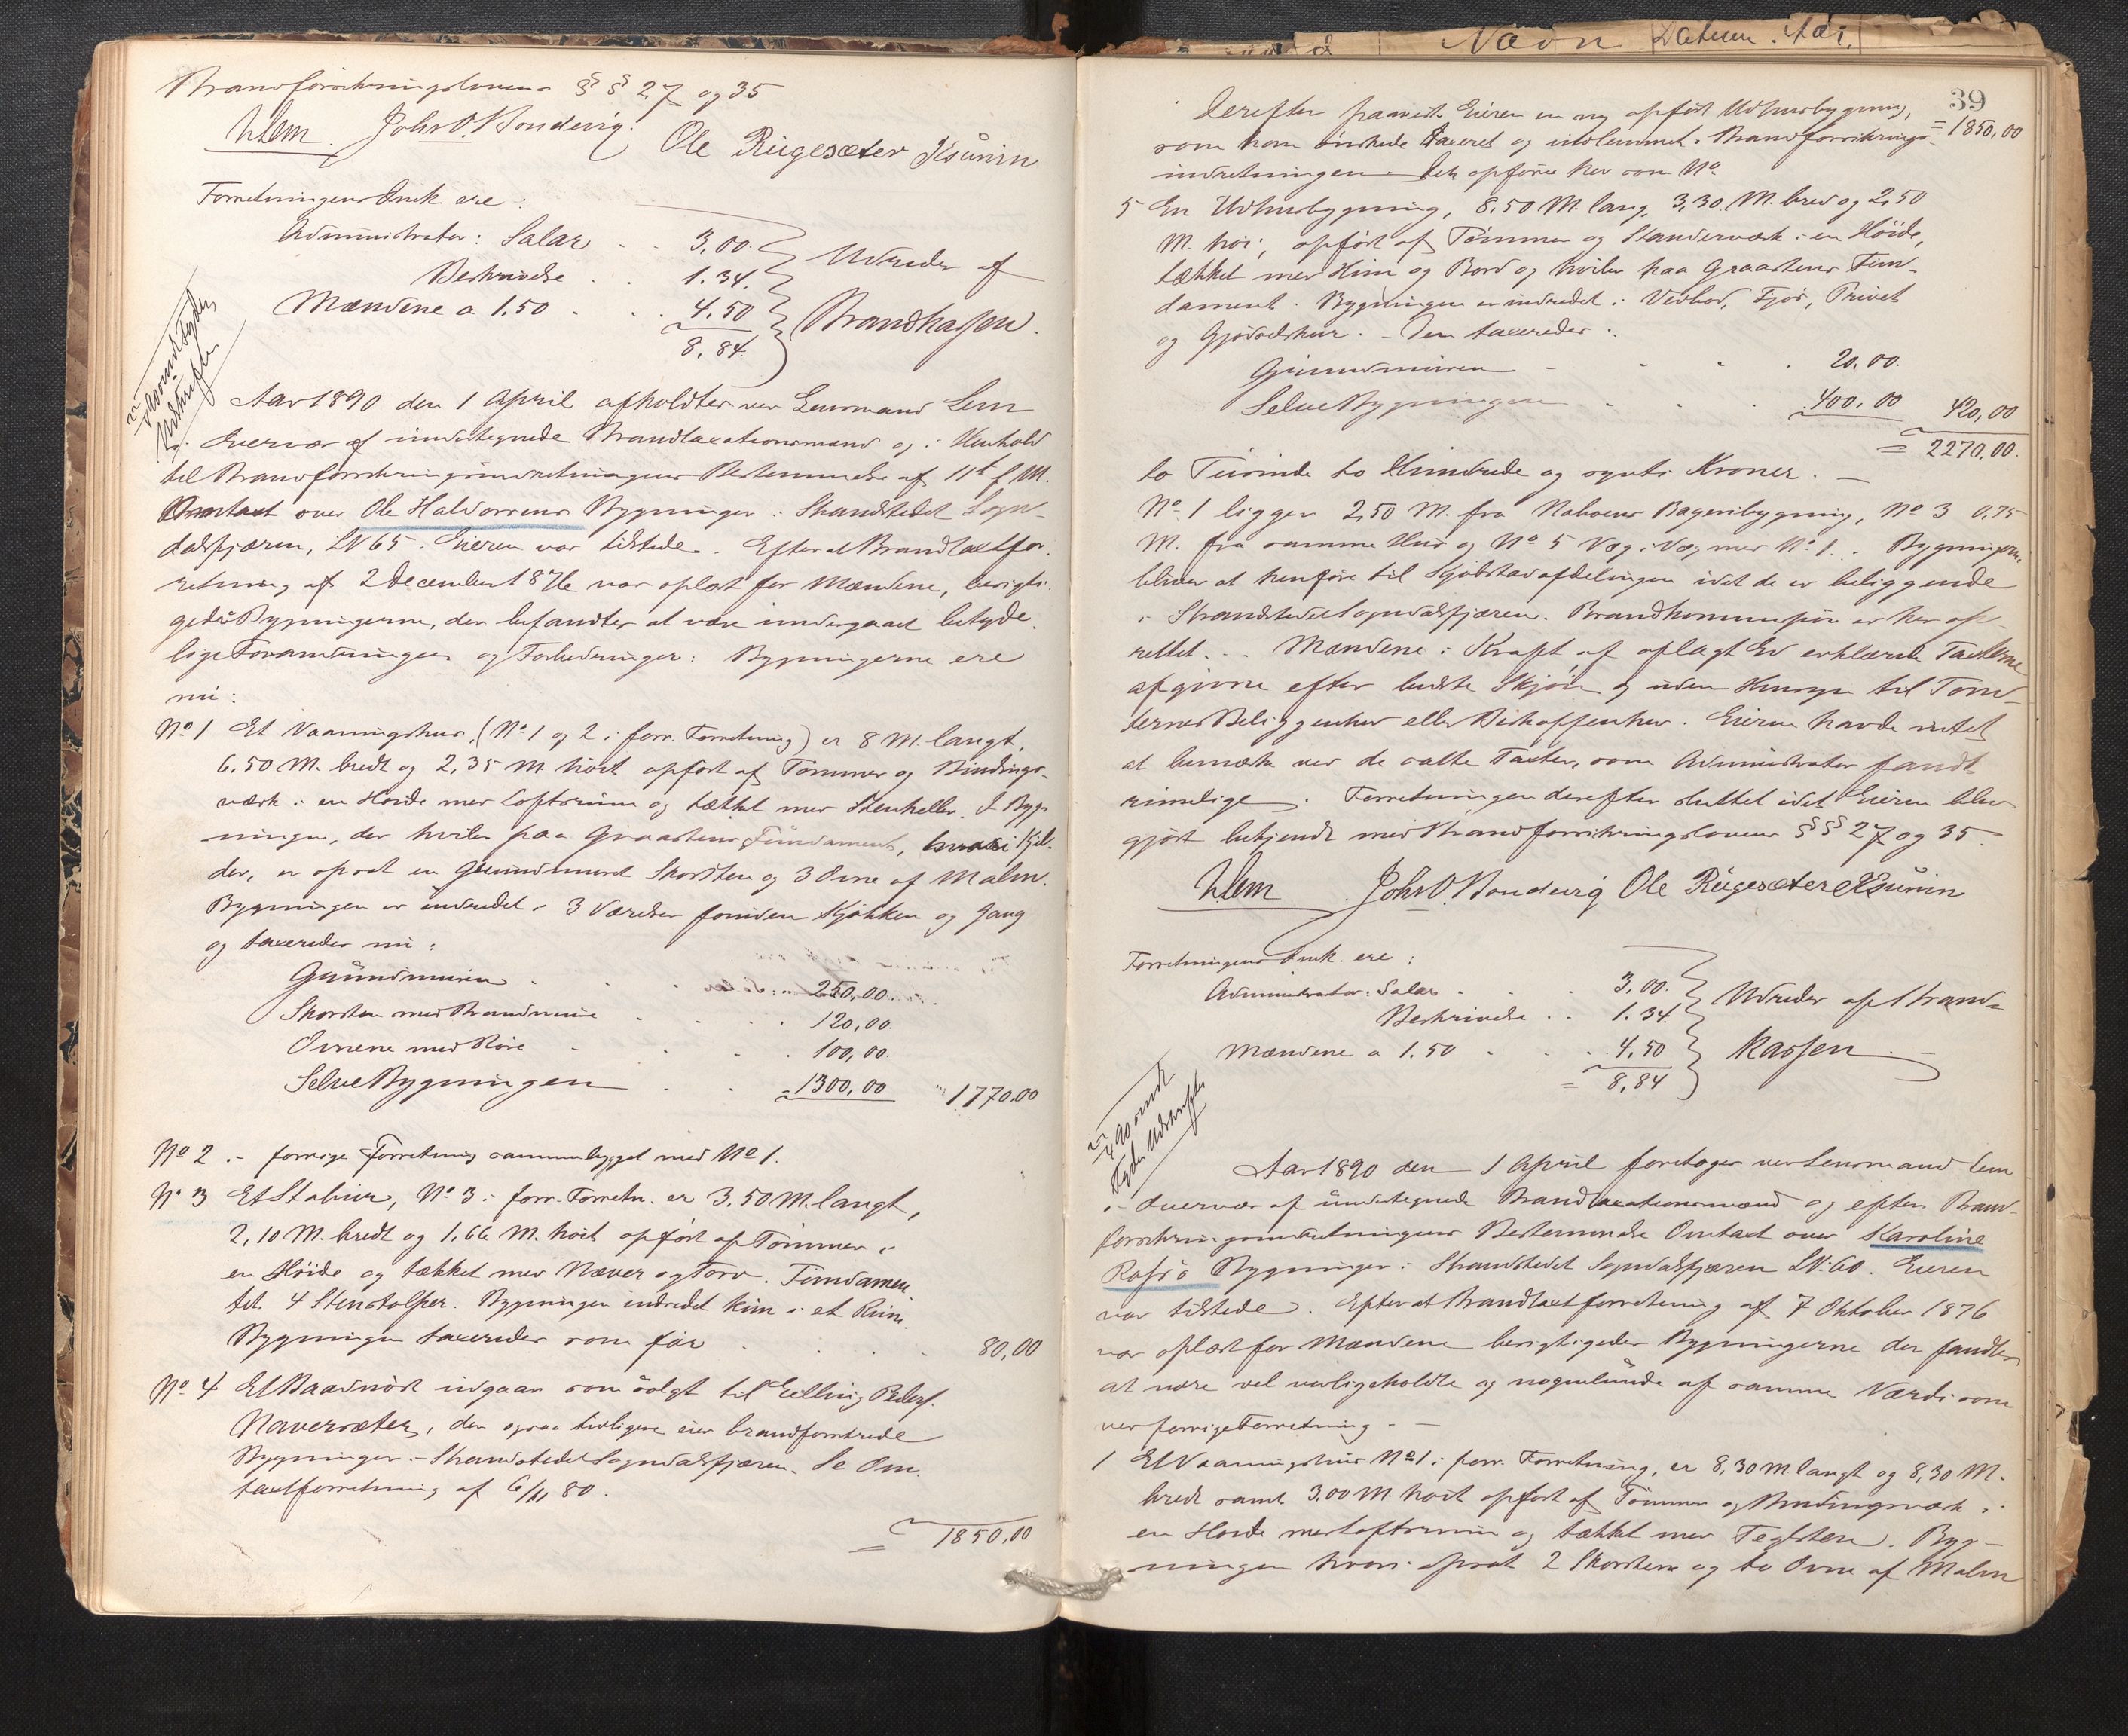 Brandforsikringslovens §§ 27 og 35
Ulem. Johs O. Bondevig. Ole Rügesæter
Forretningens Omk. ere:
Administrator: Salar . . 3,00.
Udredes af
Beskrivelse . . 1.34.
Mændene a 1,50 . . . 4,50
Brandkassen.
8,84.
Aar 1890 den 1 April afholdtes ved Lensmand Lem
i Overvær af undertegnede Brandtaxationsmænd og i Henhold
til Brandforsikringsindretningens Bestemmelse af 11te f. M.
Omtaxt over Ole Haldorsens Bygninger i Strandstedet Sogn-
dalsfjæren, LN 65. Eieren var tilstede. Efterat Brandtaxtfor-
retning af 2 December 1876 var oplæst for Mændene, besigti-
gedes Bygningerne, der befandtes at være undergaaet betyde-
lige Forandringer og Forbedringer: Bygningerne ere
nu:
No 1 Et Vaaningshus, (No 1 og 2 i forr. Forretning) er 8 M. langt,
6,50 M. bredt og 2,35 M høit opført af Tømmer og Bindings-
værk i en Høide med Loftsrum og tækket med Stenheller. I Byg-
ningen, der hviler paa Graastens Fundament, hvori Kjel-
der, er opsat en grundmuret Skorsten og 3 Ovne af Malm.
Bygningen er indredet i 3 Værelser foruden Kjøkken og Gang
og taxeredes nu:
Grundmuren . . . 250,00.
Skorsten med Brandmure . . . 120,00.
Ovnene med Rør . . . 100,00.
Selve Bygningen . . 1300,00 1770.00
No 2 i forrige Forretning sammenbygget med No 1.
No 3 Et Stabur, No 3 i forr. Forretn. er 3,50 M. langt,
2,10 M. bredt og 1,66 M. høit opført af Tømmer i
en Høide og tækket med Næver og Torv. Fundamen-
tet 4 Stenstolper. Bygningen indredet kun i et Rum.
Bygningen taxeredes som før . . . . 80,00
No 4 Et Baadnøst udgaar som solgt til Elling Peders.
Naversæter, der ogsaa tidligere eier brandforsikrede
Bygninger i Strandstedet Sogndalsfjæren. Se Om-
taxtforretning af 6/11 80.
= 1850,00
39
Derefter fremviste Eieren en ny opført Udhusbygning, = 1850,00
som han ønskede taxeret og indlemmet i Brandforsikrings-
indretningen. Den opføres her som No
5 En Udhusbygning, 8,50 M. lang, 3,30 M. bred og 2,50
M. høi, opført af Tømmer og Standerværk i en Høide,
tækket med Hun og Bord og hviler paa Graastens Fun-
dament. Bygningen er indredet i Vedbod, Fjøs, Privet
og Gjødselskur. - Den taxeredes:
Grundmuren - . . . 20,00.
Selve Bygningen . . . 400,00 420,00
= 2270,00.
to Tusinde to Hundrede og sytti Kroner. -
No 1 ligger 2,50 M. fra Naboens Bageribygning, No 3 0,75
M. fra samme Hus og No 5 Væg i Væg med No 1. . Bygningerne
bliver at henføre til Kjøbstadafdelingen idet de er beliggende
i Strandstedet Sogndalsfjæren. Brandkommission er her op-
rettet. . . Mændene i Kraft af aflagt Ed erklærede Taxterne
afgivne efter bedste Skjøn og uden Hensyn til Tom-
ternes Beliggenhed eller Beskaffenhed. Eieren havde intet
at bemærke ved de satte Taxter, som Administrator fandt
rimelige. Forretningen derefter sluttet idet Eieren blev
gjort bekjendt med Brandforsikringslovens §§ 27 og 35.
Ulem Johs O. Bondevig Ole Rügesæter
Forretningens Omk. ere:
Administrator: Salar . . . 3,00.
Udredes af Brand-
Beskrivelse . . 1.34.
Mændene a 1.50 . . . 4,50
kassen.
= 8,84
Aar 1890 den 1 April foretoges ved Lensmand Lem
i Overvær af undertegnede Brandtaxationsmænd og efter Brand-
forsikringsindretningens Bestemmelse Omtaxt over Karoline
Bygninger i Strandstedet Sogndalsfjæren LN: 60. Eieren
var tilstede. Efterat Brandtaxtforretning af 7 Oktober 1876
var oplæst for Mændene besigtigedes Bygningerne der fandtes
at være vel vedligeholdte og nogenlunde af samme Værdi som
ved forrige Forretning. -
1 Et Vaaningshus No 1 i forr. Forretning, er 8,30 M langt og 8,30 M.
bredt samt 3.00 M. høit opført af Tømmer og Bindingsværk i
en Høide med Loftsrum og tækket med Teglsten. Byg-
ningen hvori opsat 2 Skorstene og to Ovne af Malm
Navn Datum. Aar.